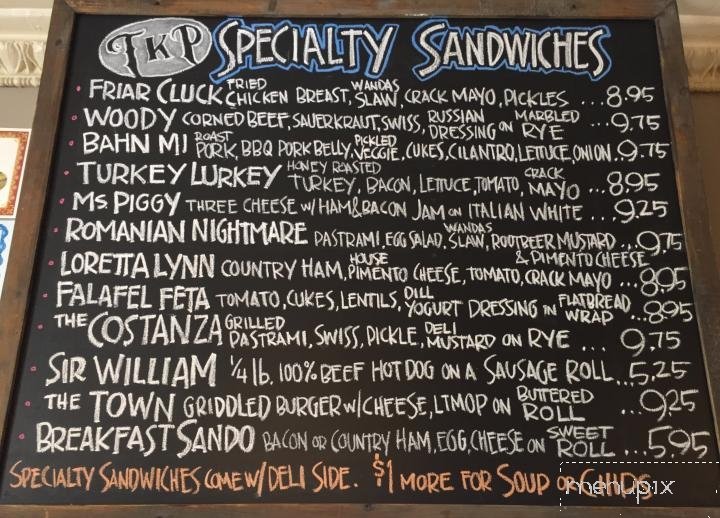 TKP SPECIALTY SANDWICHES
• FRIAR CLUCK FRIED CHICKEN BREAST, WANDAS SLAW, CRACK MAYO, PICKLES ...8.95
• WOODY CORNED BEEF, SAUERKRAUT, SWISS, RUSSIAN DRESSING ON MARBLED RYE ...9.75
• BAHN MI ROAST PORK, BBQ PORK BELLY, PICKLED VEGGIE, CUKES, CILANTRO, LETTUCE, ONION..9.75
• TURKEY LURKEY HONEY ROASTED TURKEY, BACON, LETTUCE, TOMATO, CRACK MAYO ...8.95
• MS PIGGY THREE CHEESE W/ HAM & BACON JAM ON ITALIAN WHITE ...9.25
• ROMANIAN NIGHTMARE PASTRAMI, EGG SALAD, WANDAS SLAW, ROOTBEER MUSTARD & PIMENTO CHEESE ...9.75
• LORETTA LYNN COUNTRY HAM, HOUSE PIMENTO CHEESE, TOMATO, CRACK MAYO ...8.95
• FALAFEL FETA TOMATO, CUKES, LENTILS, DILL YOGURT DRESSING IN FLATBREAD WRAP ...8.95
• THE COSTANZA GRILLED PASTRAMI, SWISS, PICKLE, DELI MUSTARD ON RYE ... 9.75
• SIR WILLIAM 1/4 lb. 100% BEEF HOT DOG ON A SAUSAGE ROLL...5.25
• THE TOWN GRIDDLED BURGER W/CHEESE, LTMOP ON BUTTERED ROLL ...9.25
• BREAKFAST SANDO BACON OR COUNTRY HAM, EGG, CHEESE ON SWEET ROLL ...5.95
SPECIALTY SANDWICHES COME W/ DELI SIDE. $1 MORE FOR SOUP OR CHIPS.
menupix